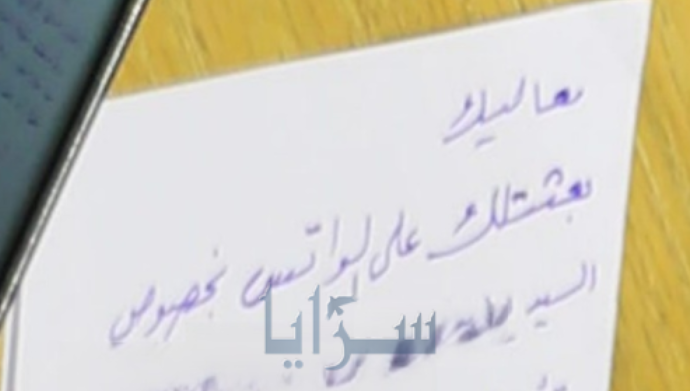 معاليك
بعثتلك على لواتس بخصوص
السيد
سرايا